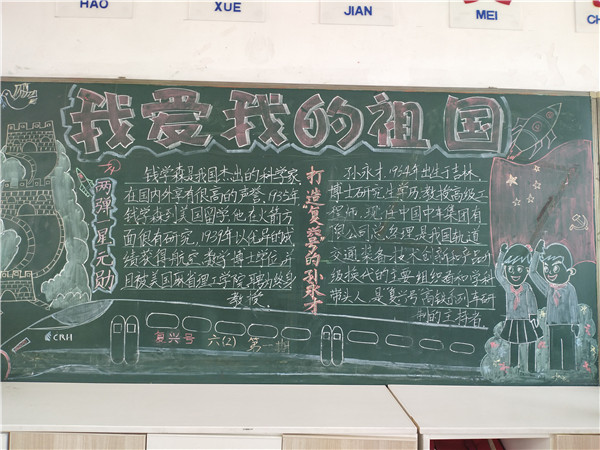 HAO
XUE
JIAN
MEI
CH
我爱我的祖国
两弹一星元勋
钱学森是我国杰出的科学家,
在国内外享有很高的声誉,1935年
钱学森到美国留学他在火箭方
面很有研究,1939年以优异的成
绩获得航空、数学博士学位并
且被美国麻省理工学院聘为终身
教授。
打造"复兴号"的孙永才
孙永才,1964年出生于吉林,
博士研究生学历,教授高级工
程师,现任中国中车集团有
限公司总经理是我国轨道
交通装备技术创新和产品升
级换代的主要组织者和学科
带头人,是复兴号高铁系列车研
制的主持者。
CRH
复兴号 六(2) 第一期